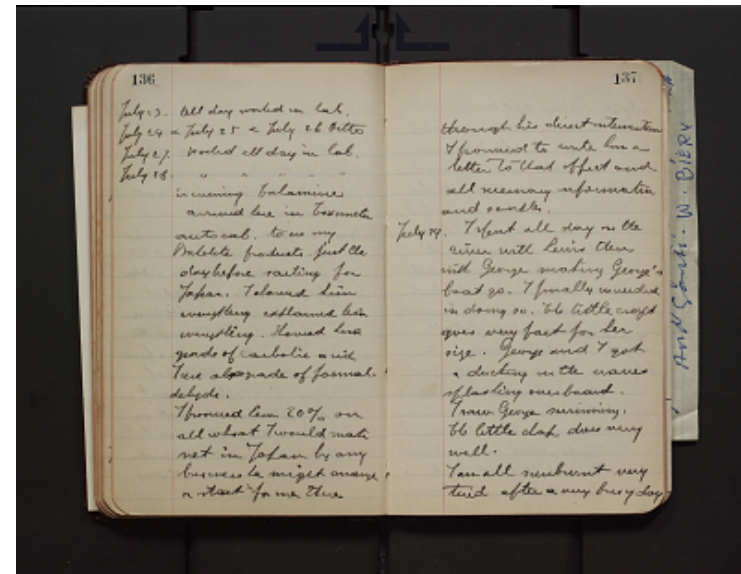 136
July 23. All day worked in lab.
July 24 & July 25 & July 26 Ditto
July 27. Worked all day in lab.
July 28. " " " " "
in evening Takamine
arrived here in taximeter
autocab. to see my
Bakelite products just the
day before sailing for
Japan. I showed him
everything explained him
everything. Showed him
grade of carbolic acid
I use also grade of formal-
dehyde.
I promised him 20% on
all what I would make
net in Japan by any
business he might arrange
or start for me there
137
through his direct intervention
I promised to write him a
letter to that effect and
all necessary information
and samples.
July 29. I spent all day on the
river with Lewis then
with George making George's
boat go. I finally succeeded
in doing so. The little craft
goes very fast for her
size. George and I got
a ducking in the waves
splashing overboard.
I saw George swimming.
The little chap does very
well.
I am all sunburnt very
tired after a very busy day
W. BIERY